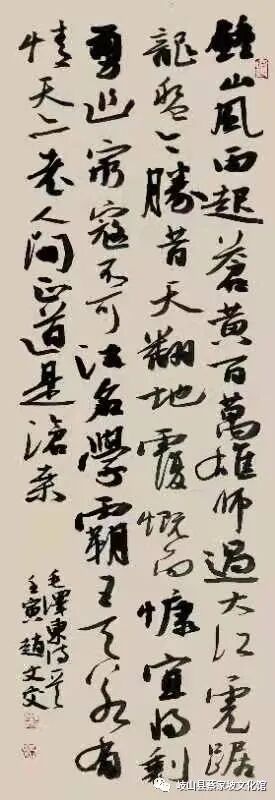 鍾山風雨起蒼黃百萬雄師過大江虎踞
龍盤今勝昔天翻地覆慨而慷宜將剩
勇追窮寇不可沽名學霸王天若有
情天亦老人間正道是滄桑
毛澤東詩一首
壬寅趙文
岐山县蔡家坡文化馆